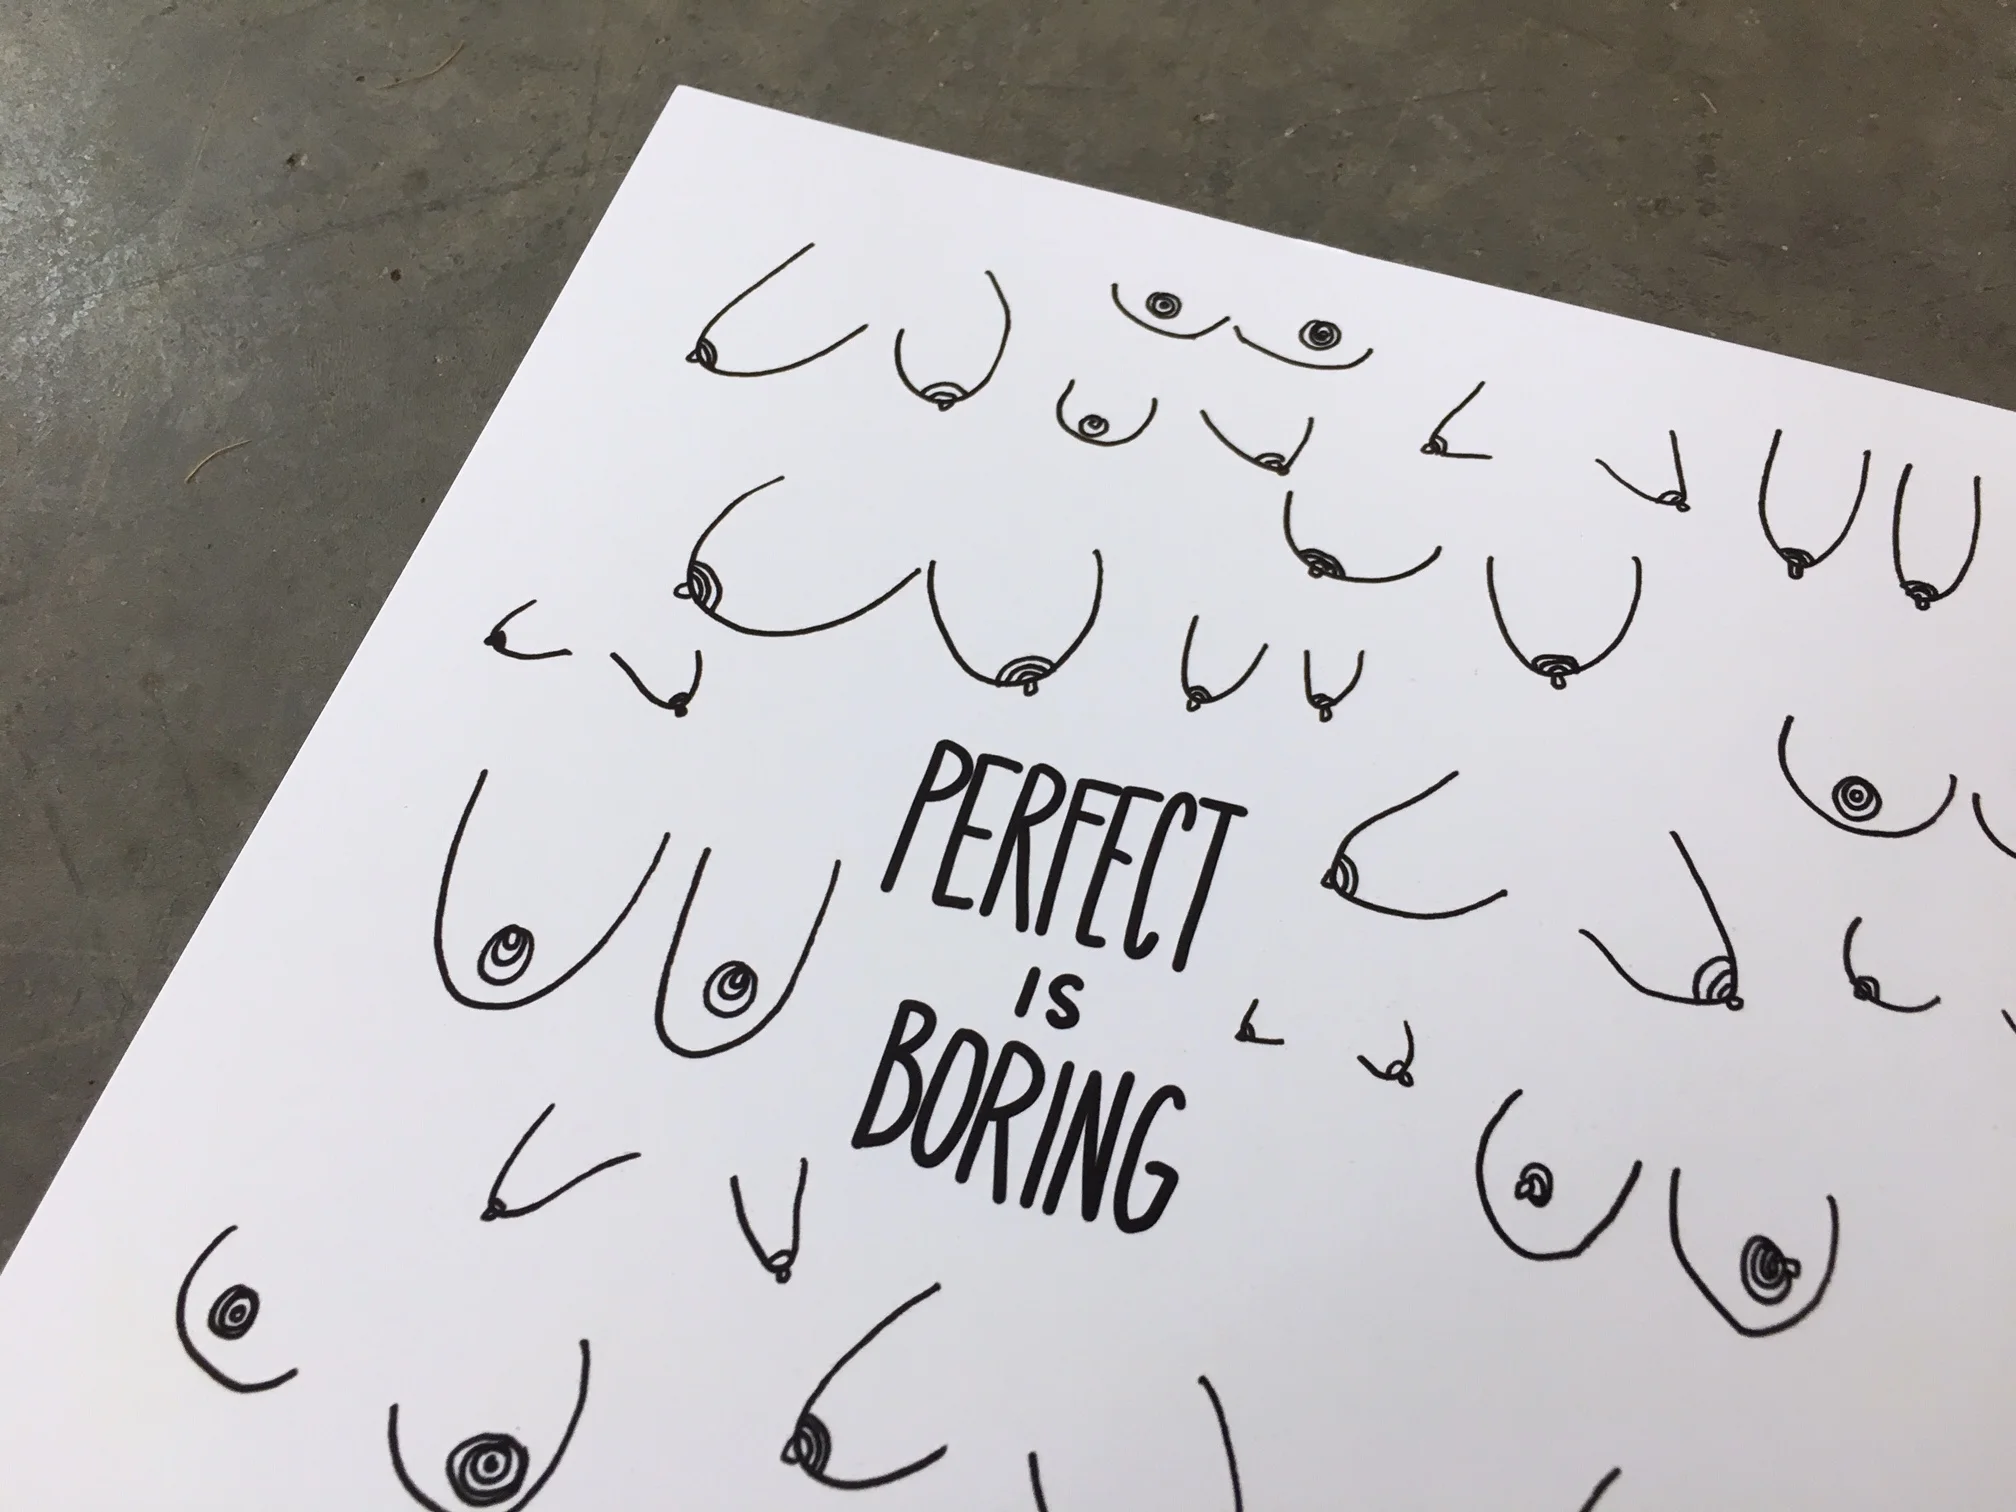 PERFECT
IS
BORING